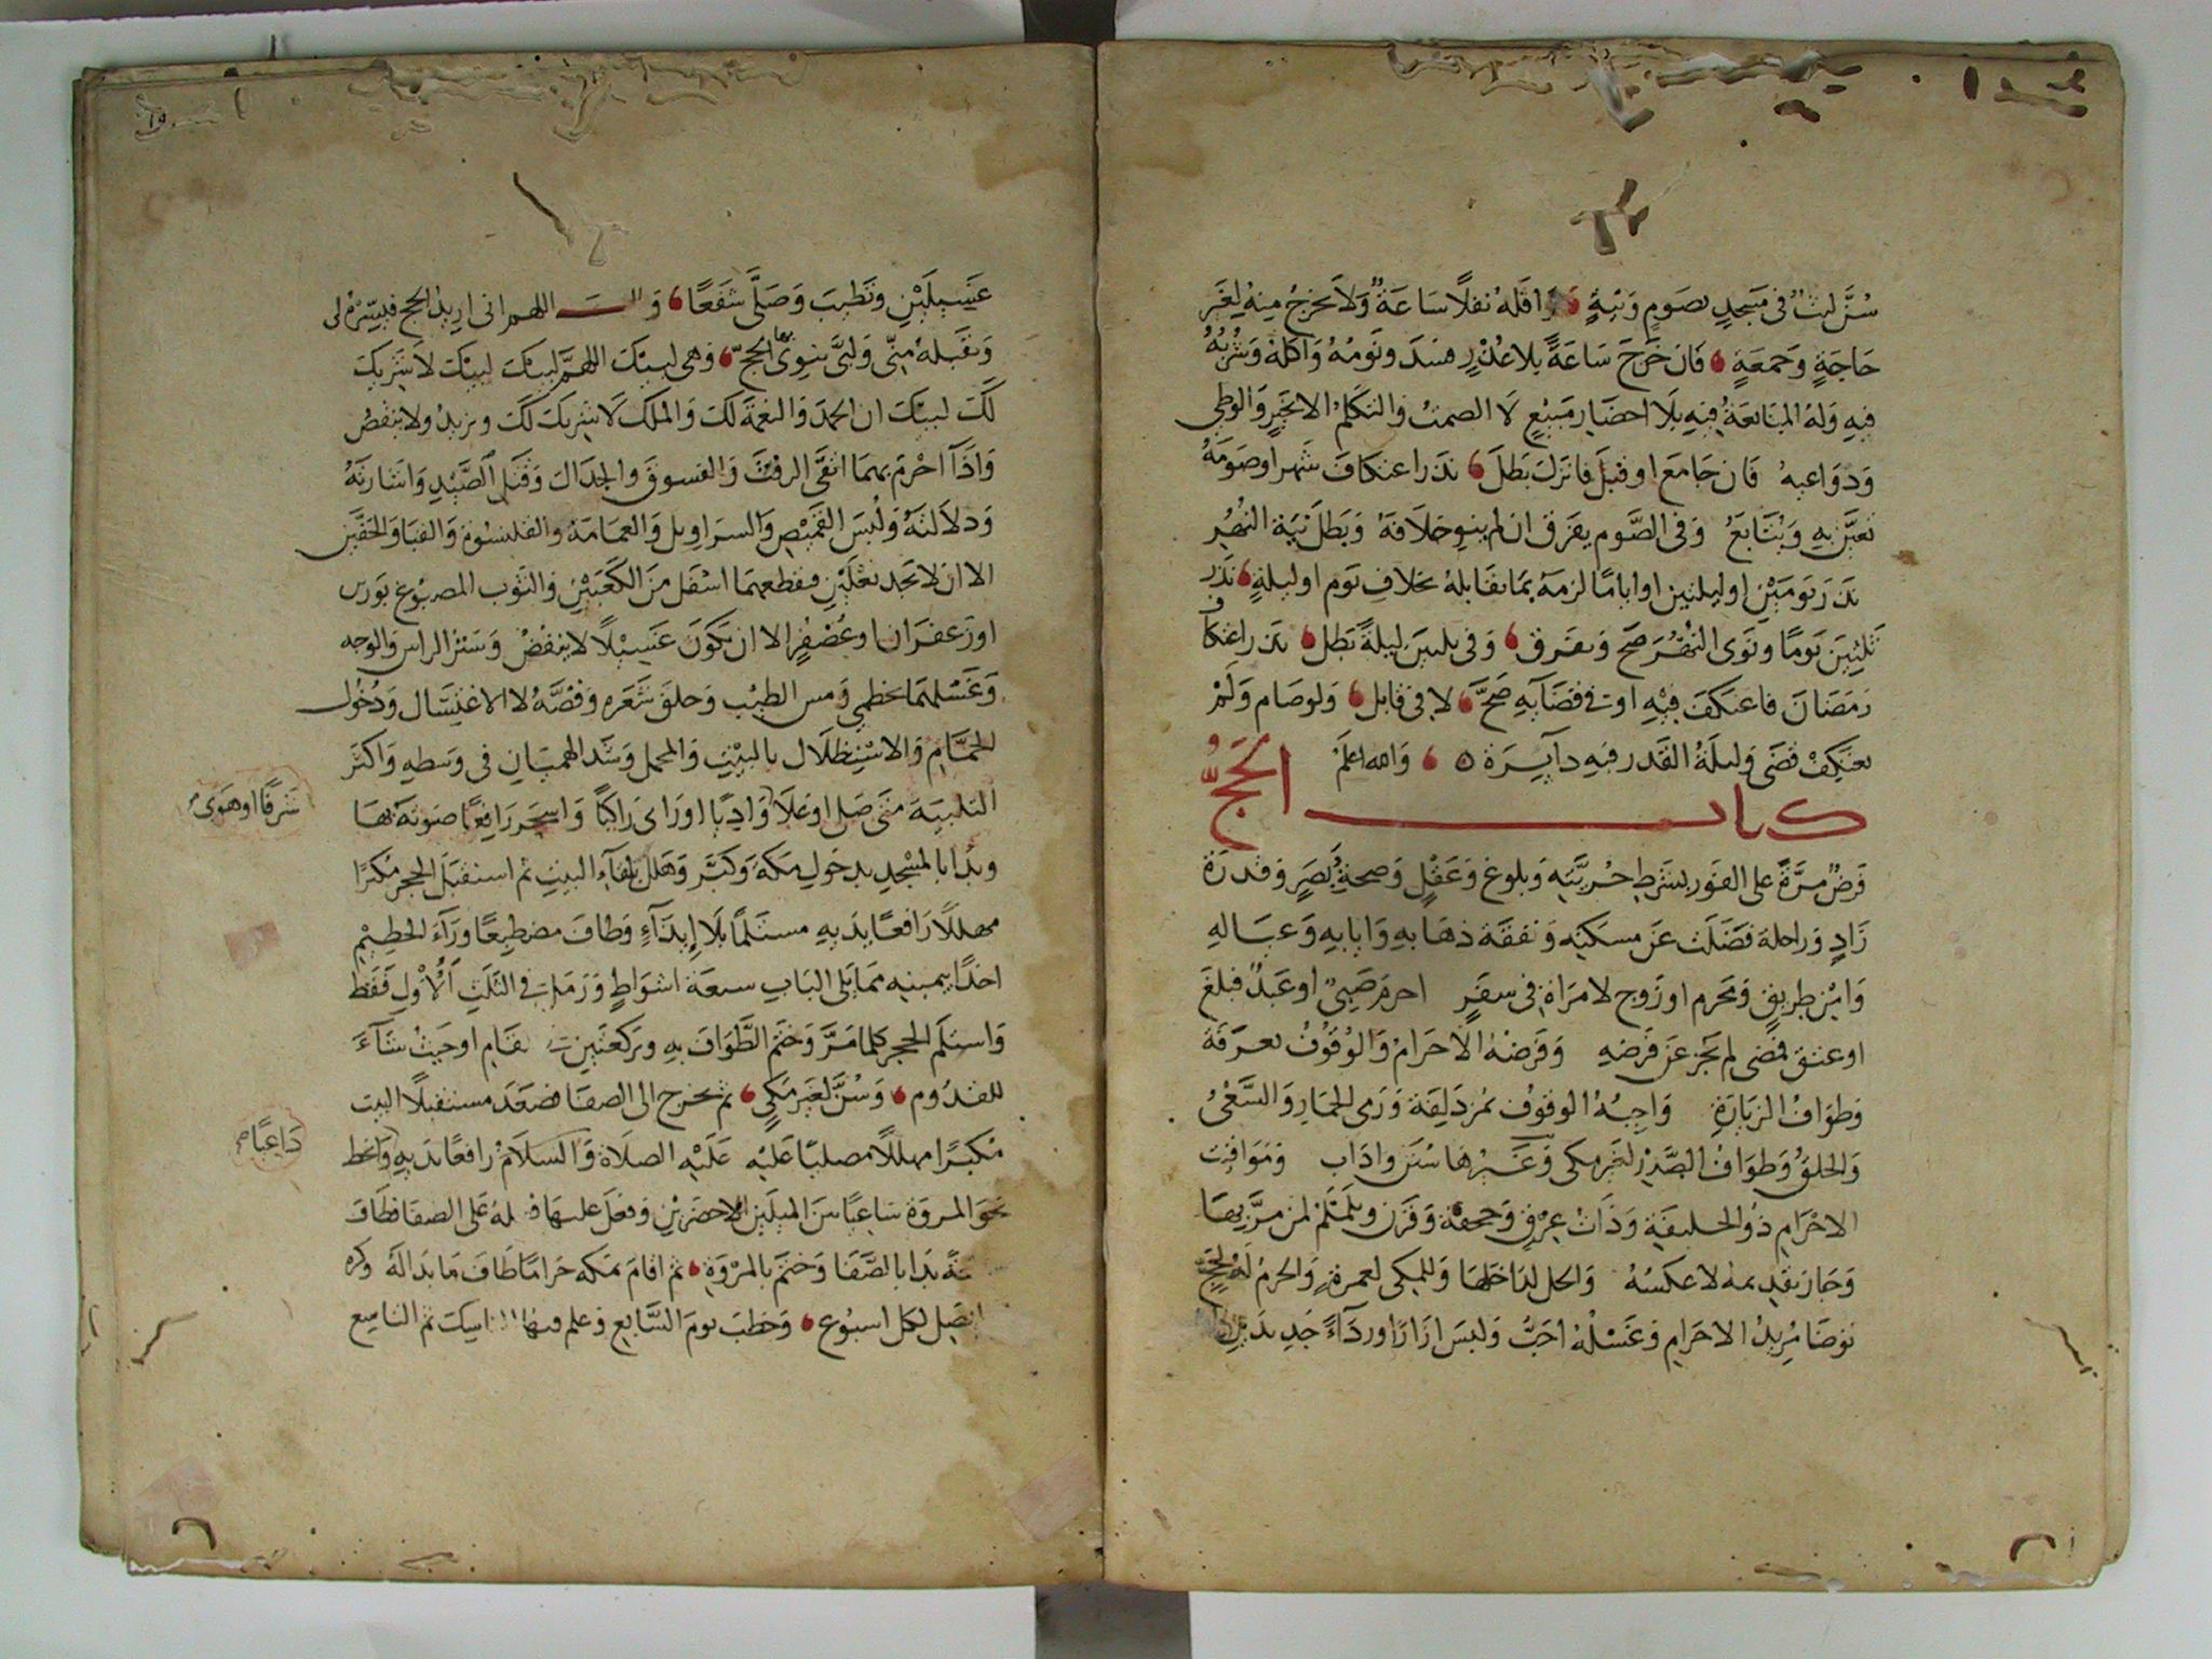 سُنَّ لبثٌ فى مَسجدٍ بصَومٍ وَنيةٍ وَاقله نفلًا سَاعَةٌ وَلَا يخرجُ مِنهُ لِغَير
حَاجَةٍ وَجمعَةٍ فَان خَرَجَ سَاعَةً بلا عُذرٍ فسَدَ وَنَومُهُ وَاكلهُ وَشُربُهُ
فيهِ وَلهُ المبَايعَةُ فيهِ بلَا احضَار مَبيعٍ لَا الصمتُ وَالتكلمُ الا بخَيرٍ وَالوطى
وَدوَاعيهُ فَان جَامَعَ او قبلَ فانزلَ بَطلَ نذرَ اعتكافَ شَهر او صَومَهُ
تعيَّن به وَيُتَابعُ وَفى الصَّوم يفرق ان لم ينو خلافهُ وَبَطلَ نيَة النهُر
نذرَ يَومَيْن او ليلتين او ايامًا لزمَهُ بمَا يقابلهُ بخلافِ يَوم او ليلةٍ نذرَ
ثَلثينَ يَومًا وَنوَى النُّهُرَ صَح وَيفرق وَفى ثلثين ليلةً بَطل نذر اعتكاف
رَمَضَانَ فاعتكفَ فيْهِ او فى قضَآيهِ صَحَّ لا فى قابل وَلو صَام وَلمْ
يعتكِفْ قضَى وَليلَةُ القَدر فيهِ دآيرَة ٥ وَالله اعلمَ
كتاب الحَجُّ
فَرضٌ مرَّةً على الفَور بشَرطِ حُريَّتِه وَبلوغ وَعَقلٍ وَصحةٍ وَبَصَرٍ وَقدرَة
زَادٍ وَراحلة فَضَلَت عَن مسكنِه وَنفقَة ذهَابهِ وَايابهِ وَعيَالهِ
وَامْنِ طريقٍ وَمحرم او زَوج لامرَاةٍ فى سفَرٍ احرمَ صَبىٌ او عَبدٌ فبلغَ
او عتق فمضى لم يجز عَن فَرضهِ وَفَرضهُ الاحرَامُ وَالوُقوُفُ بعَرَفَة
وَطوَافُ الزيَارَةِ وَاجبُهُ الوقوُف بمُزدَلفَة وَرَمى الجمَار وَالسَّعْىُ
وَالحلقُ وَطوَافُ الصَّدر لغير مكى وَغيرُهَا سُنَن وادَاب وَمَوَاقيت
الاحْرَامِ ذُو الحليفَة وَذَاتُ عِرْقٍ وَجحفة وَقرن وَيلَملَمُ لمن مرَّ بهَا
وَجَازَ تقديمه لا عكسُهُ وَالحل لدَاخلهَا وَللمكى لعمرةٍ وَالحرمُ لهُ لحجٍّ
توضَا مُريدُ الاحرَامِ وَغَسْلُهُ احَبُّ وَلبسَ ازَارًا وردَآءً جَديدَينِ او
غَسِيلَيْنِ وتطيبَ وَصَلَّى شفَعًا وَقالـــت اللهم انى اريدُ الحج فيسّرهُ لى
وَتقبلهُ مِنّى وَلبىَّ ينوى بها الحجَّ وَهى لبيكَ اللهمَّ لبيكَ لبيكَ لا شريكَ
لكَ لبيكَ ان الحمدَ وَالنعمَةَ لكَ وَالملكَ لَا شريكَ لكَ ويزيدُ ولا ينقصُ
وَاذَا احْرمَ بهمَا اتقَى الرفثَ وَالفسوقَ وَالجدَالَ وَقتلَ الصَّيْدِ وَاشَارتَهُ
وَدلاَلتَهُ وَلُبسَ القَميْص وَالسرَاويل وَالعمَامَةِ والقلنسُوة وَالقبَا وَالخفَّين
الا ان لا تجد نعْلَيْنِ فيقطعهمَا اسْفَل منَ الكَعْبَيْنِ وَالثوب المصبُوغ بوَرس
او زَعفرَان او عُصْفُرٍ الا ان تكوُنَ غَسيْلًا لا ينفُضُ وَسَترُ الراس وَالوجه
وَغَسْلهمَا بخطمى وَمس الطيْب وَحلقَ شَعَره وَقصَّهُ لا الاغتسَال وَدخُول
الحمَّام وَالاستظلَال بالبَيْتِ وَالمحمل وَشَد الهمْيَانِ فى وَسطِهِ وَاكثَرَ
التلبيَة متَى صَلى او عَلا وَاديًا او رَاى رَاكبًا وَاسحَر رَافعًا صَوتهُ بهَا
شَرفًا او هبط
وَبدَا بالمسْجدِ بدخولِ مكةَ وَكبَّر وَهَلل تلقآءِ البيتِ ثم استقبَل الحجر مُكبرًا
مهللًا رَافعًا يدَيهِ مستلمًا بلَا إيذَآءٍ وَطافَ مضطبعًا وَرَآءَ الحَطيمِ
اخذًا بيمينِهِ مما يَلى البَابِ سبعَةَ اشوَاطٍ وَرَمَلَ فى الثَّلث الأُوَلِ فقَط
وَاستلَم الحجر كلمَا مَرَّ وَختَم الطَّوَافَ بهِ وَبركعتَينِ فى المقَامِ او حَيثُ شَآءَ
للقدُوم وَسُنَّ لغَير مَكىٍ ثم يخرج الى الصفَا فصَعَدَ مستقبلًا البيت
مُكبّرًا مهللًا مصليًا عَليْهِ عَلَيْهِ الصلَاة وَالسلَامُ رافعًا يدَيهِ وَانحط
دَاعيًا صح
نحوَ المروَةِ سَاعيًا بينَ الميلَينِ الاخضَرَيْنِ وَفعَل عليهَا فعلهُ عَلى الصفَا فطَافَ
بَدَا بالصَّفَا وَختَم بالمرْوَةِ ثم اقامَ بمكه حَرامًا طَافَ مَا بَدَا لَهُ وكره
ليُصَل لكل اسبُوع وَخطبَ يومَ السَّابع وَعلم فيهَا المناسِكَ ثم التاسِع